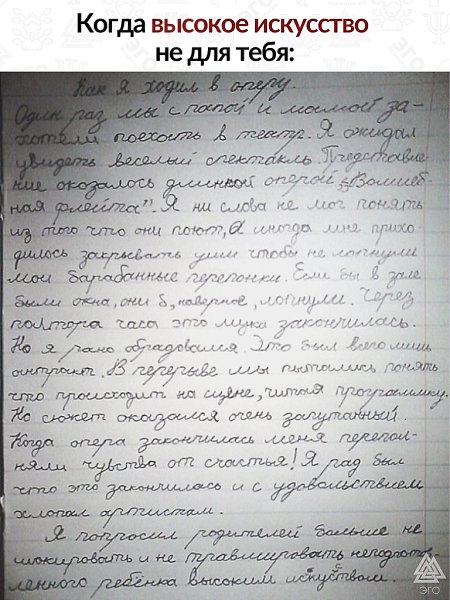 Когда высокое искусство
не для тебя:
Как я ходил в оперу.
Один раз мы с папой и мамой за-
хотели поехать в театр. Я ожидал
увидеть веселый спектакль. Представле-
ние оказалось длинной оперой „Волшеб-
ная флейта". Я ни слова не мог понять
из того что они поют, а иногда мне прихо-
дилось закрывать уши чтобы не лопнули
мои барабанные перепонки. Если бы в зале
были окна, они б, наверное, лопнули. Через
полтора часа это мука закончилась.
Но я рано обрадовался. Это был всего лишь
антракт. В перерыве мы пытались понять
что происходит на сцене, читая программку.
Но сюжет оказался очень запутанный.
Когда опера закончилась меня перепол-
няли чувства от счастья! Я рад был
что это закончилась и с удовольствием
хлопал артистам.
Я попросил родителей больше не
шокировать и не травмировать неподготов-
ленного ребёнка высоким искуством.
эго